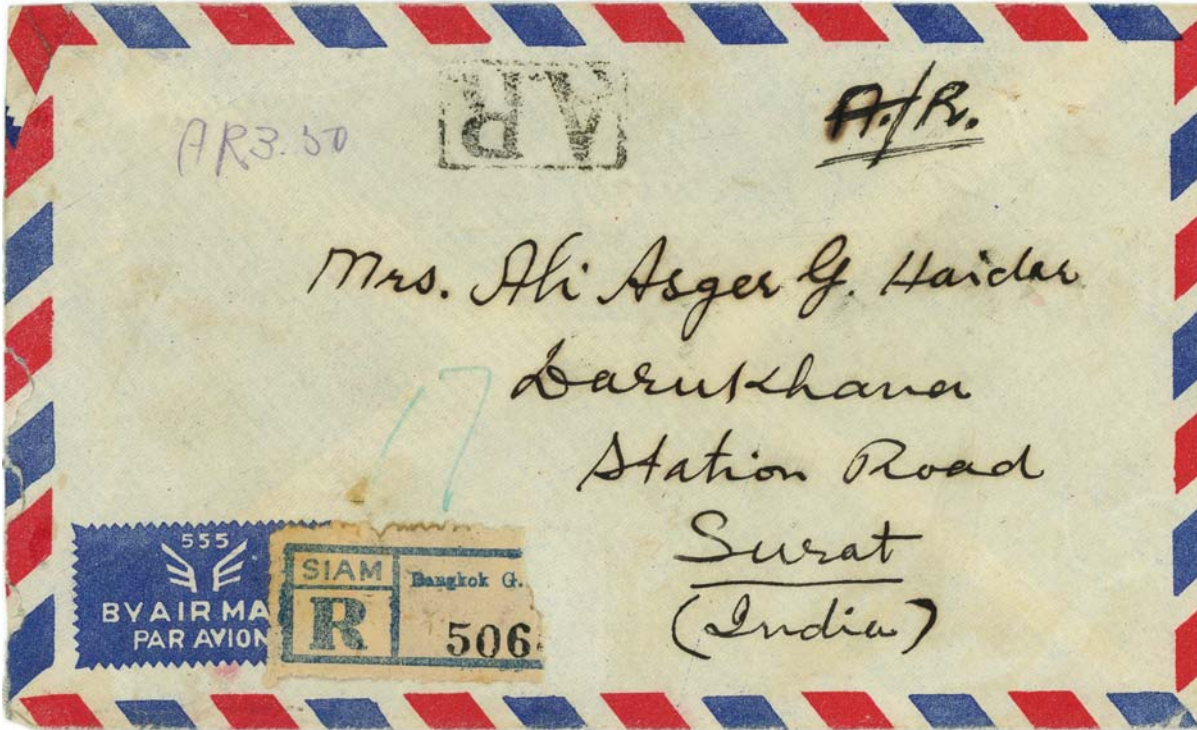 AR3.50
A R
A./R.
Mrs. Ali Asger G. Haider
Darukhana
Station Road
Surat
(India)
17
555
BY AIR MA
PAR AVION
SIAM
R
Bangkok G.
506